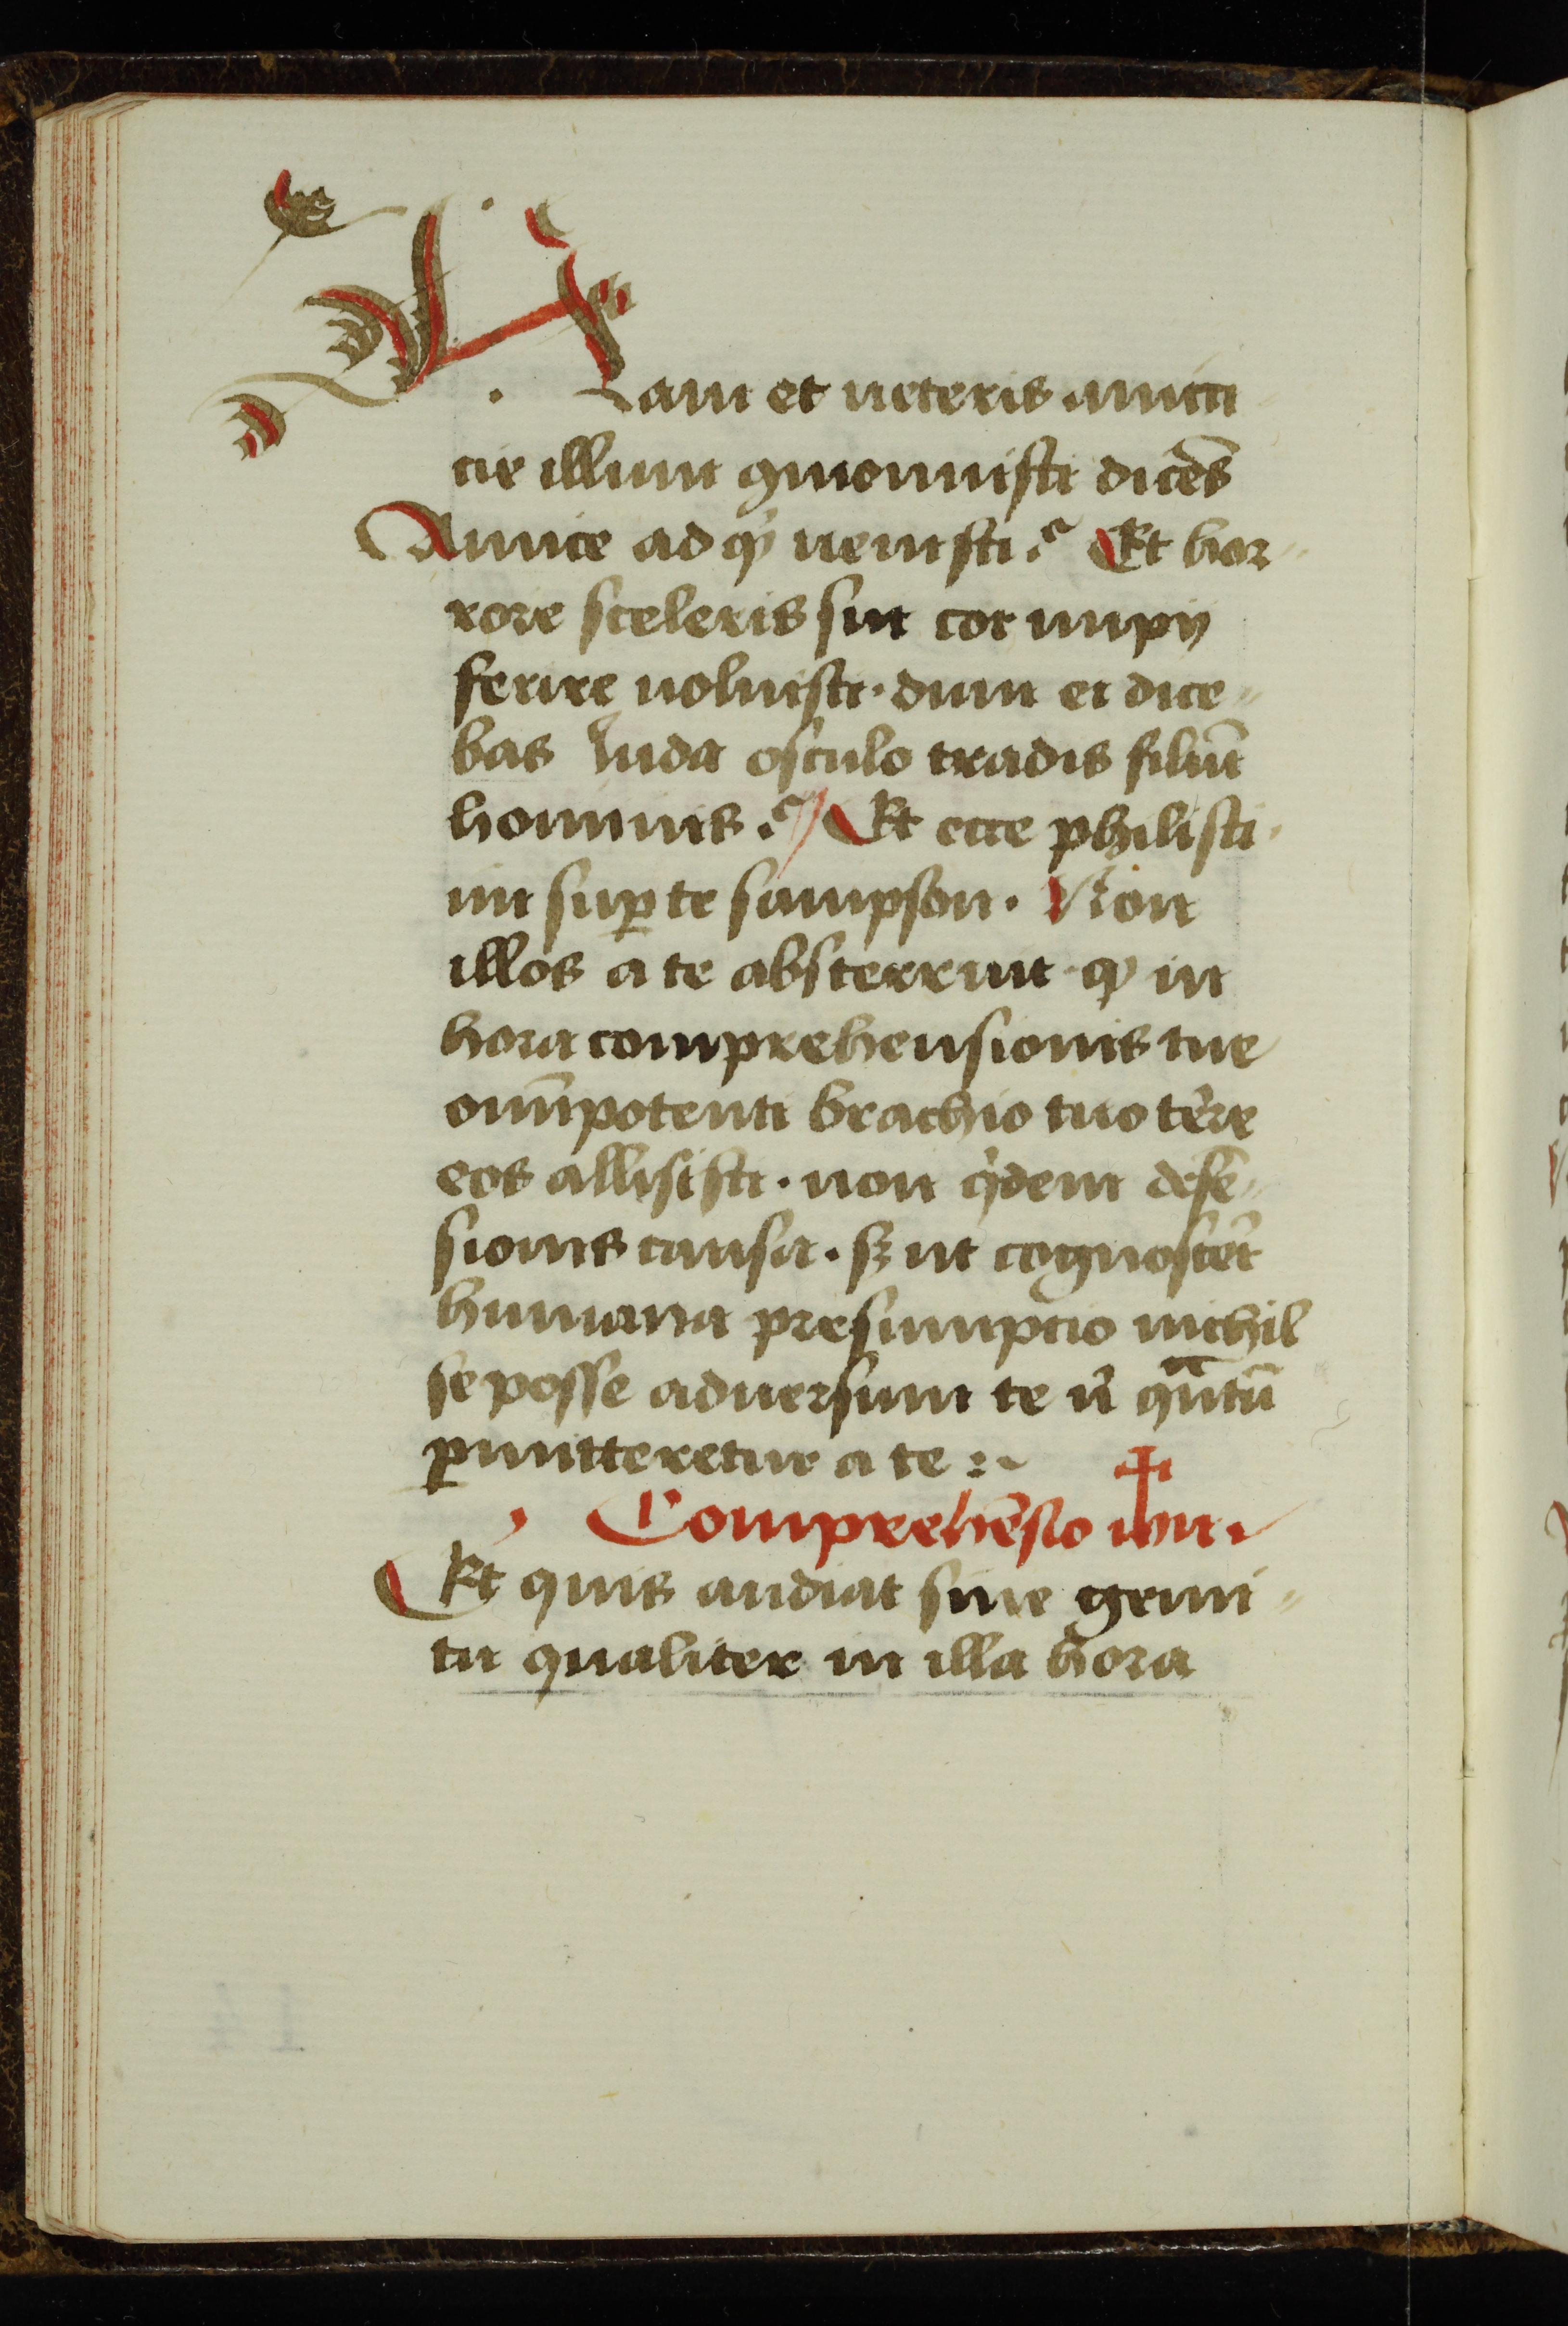 Nam et ueteris amici
cie illum ꝯmonuisti dicēs
Amice ad qͥ uenisti? Et hor-
rore sceleris sui cor impij
ferire uoluisti· dum ei dice-
bas Iuda osculo tradis filiū
hominis? Et ecce philisti-
im suꝑ te sampson. Non
illos a te absterruit ꝙ in
hora comprehensionis tue
oīnpotenti brachio tuo tere
eos allisisti. non qͥdem defē-
sionis causa. sꝫ ut cognoscēt
humana presumptio nichil
se posse aduersum te n̄ qͣntū
ꝑmitteretur a te :~
Comprehēsio ihu.
Et quis audiat sine gemi-
tu qualiter in illa hora
14